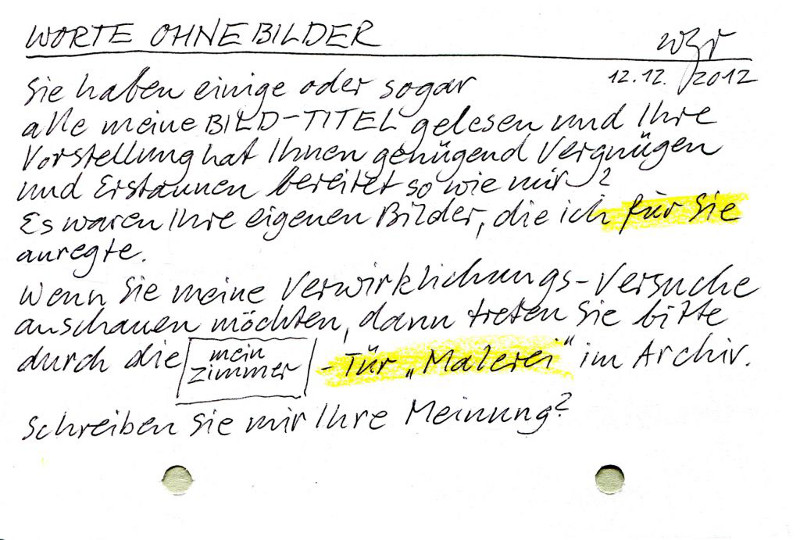 WORTE OHNE BILDER
12.12.2012
Sie haben einige oder sogar
alle meine BILD-TITEL gelesen und Ihre
Vorstellung hat Ihnen genügend Vergnügen
und Erstaunen bereitet so wie mir?
Es waren Ihre eigenen Bilder, die ich für Sie
anregte.
Wenn Sie meine Verwirklichungs-Versuche
anschauen möchten, dann treten Sie bitte
durch die mein zimmer -Tür „Malerei“ im Archiv.
Schreiben Sie mir Ihre Meinung?